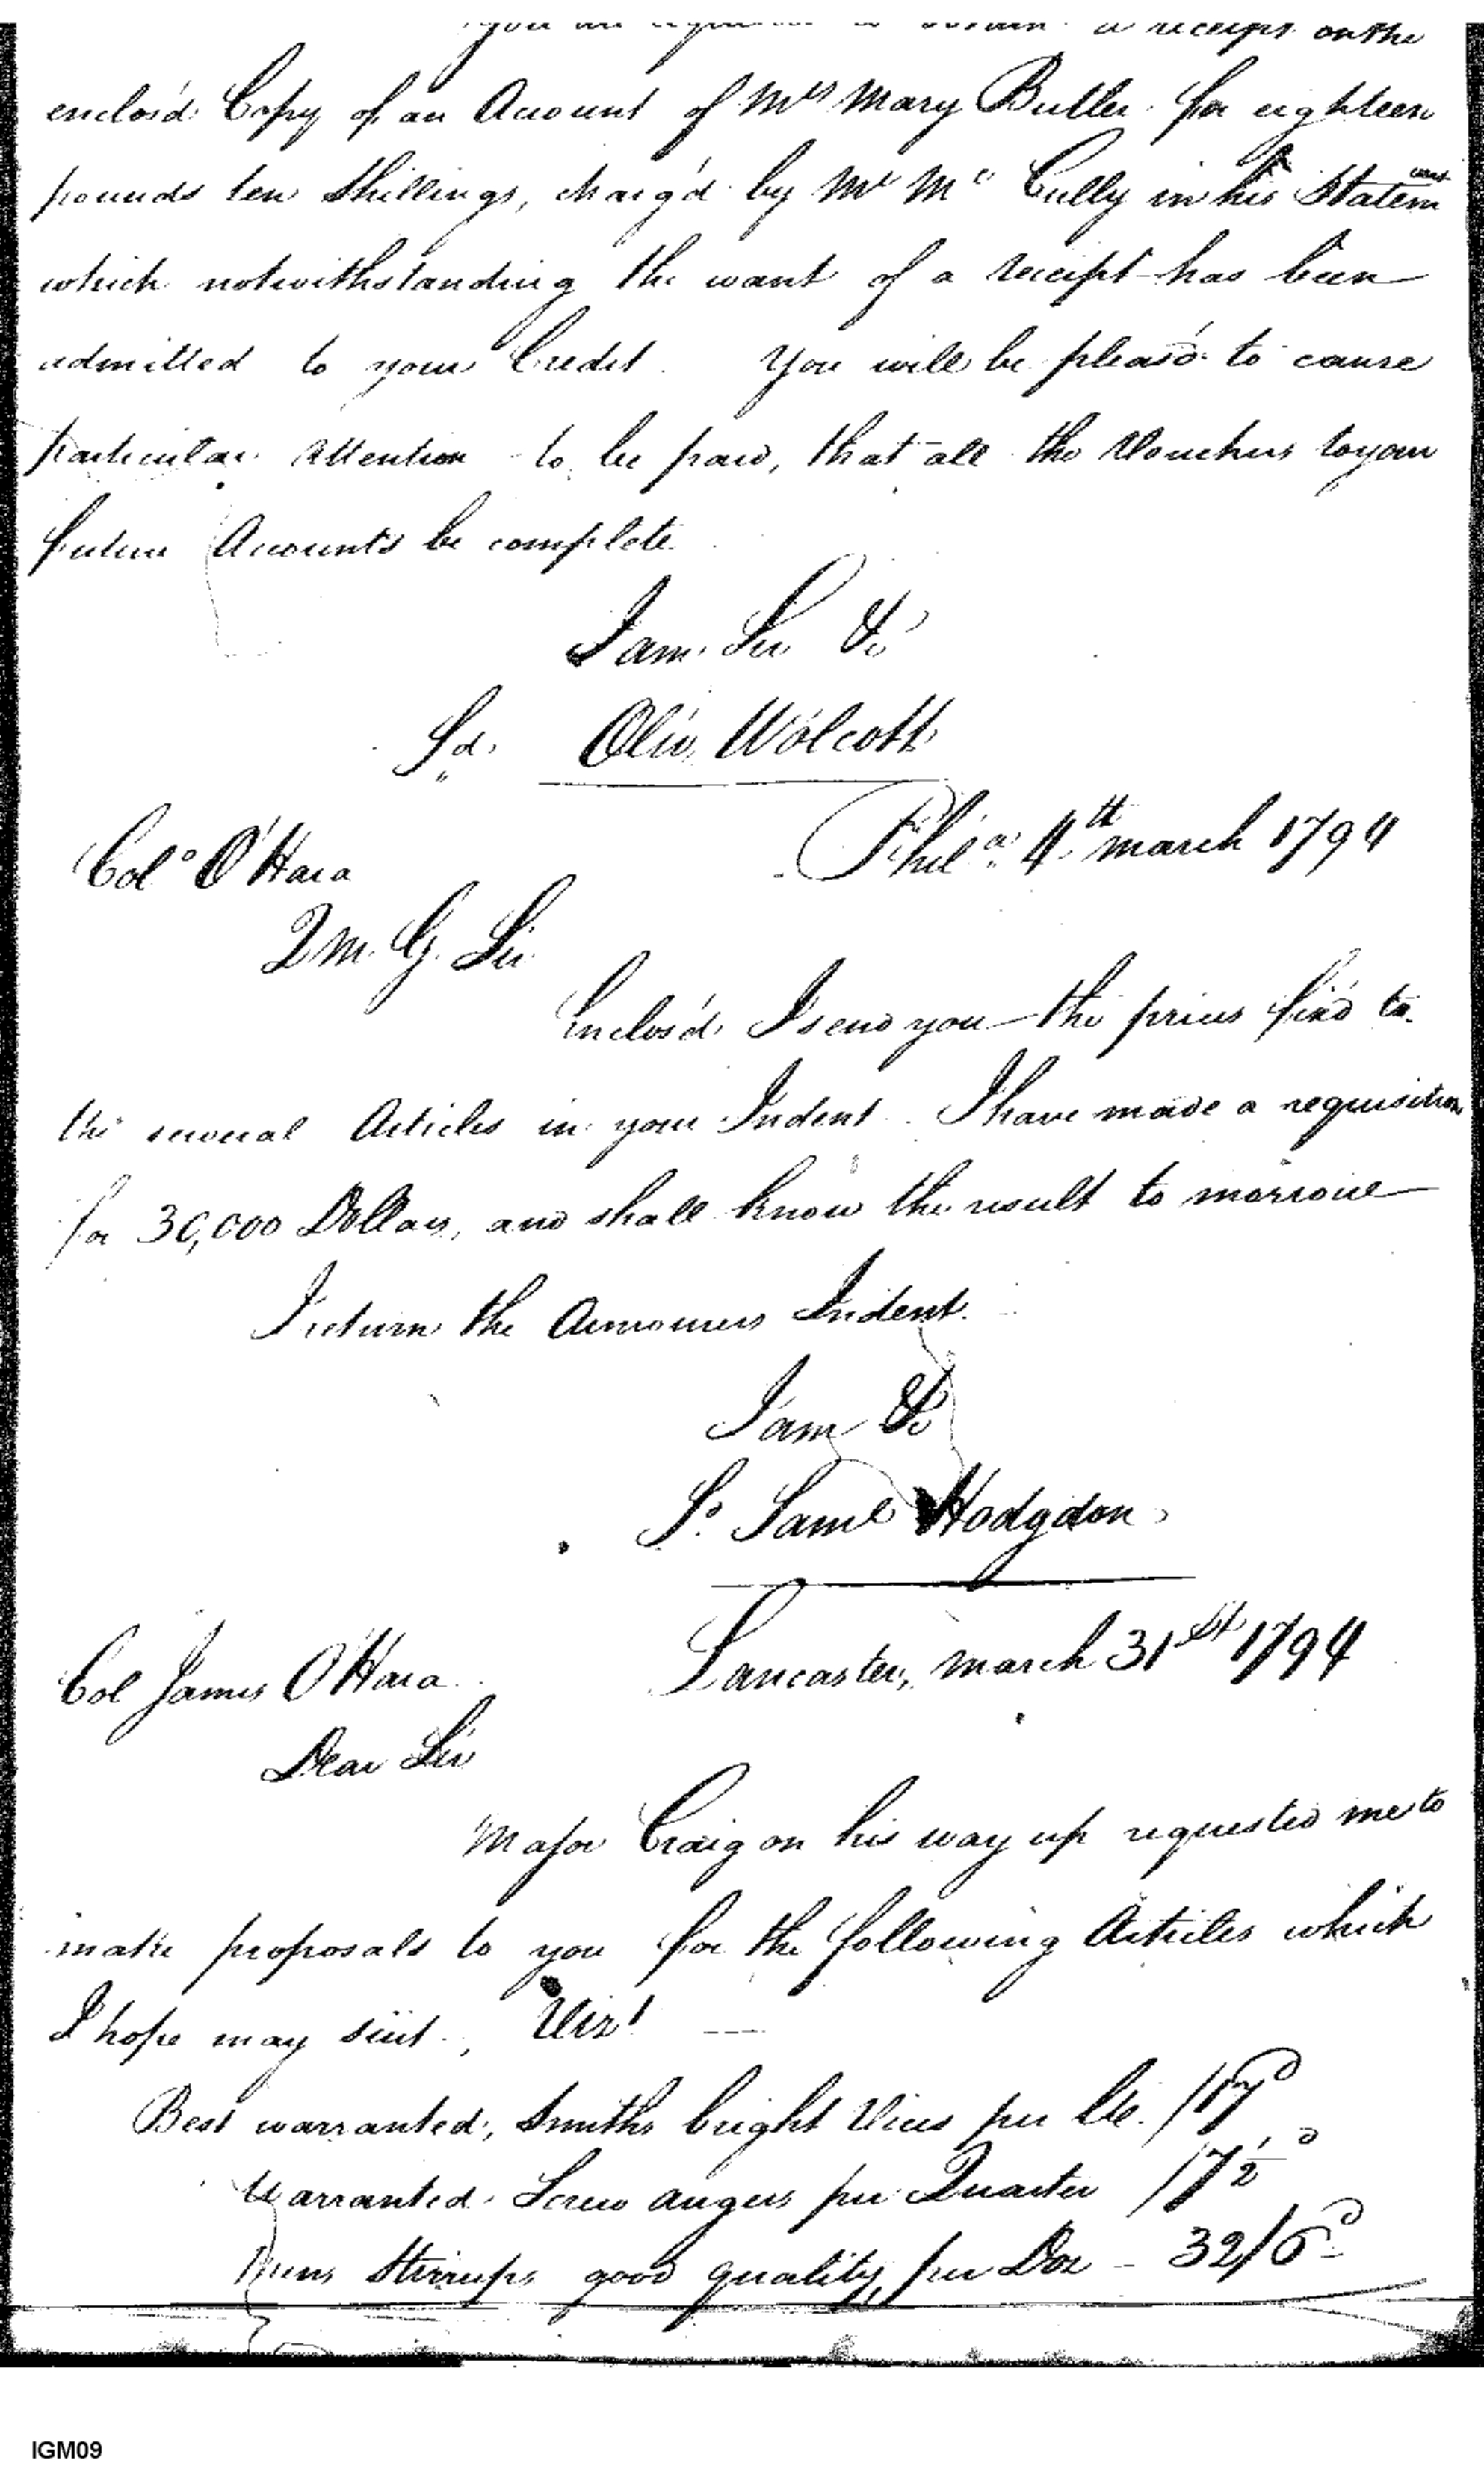 you are requested to obtain a receipt on the
enclos'd Copy of an Account of Mrs Mary Butler for eighteen
pounds ten Shillings, charg'd by Mr Mc Cully in his Statement
which notwithstanding the want of a receipt has been
admitted to your Credit. You will be pleas'd to cause
particular attention to be paid, that all the Vouchers to your
future Accounts be complete.
I am Sir &c
Sd. Oliv. Wolcott
Phila. 4th march 1794
Colo O'Hara
Q M. G. Sir
Enclos'd I send you the prices fix'd to
the several Articles in your Indent. I have made a requisition
for 30,000 Dollars, and shall know the result to morrow
I return the Armourers Indent.
I am &c
Sd. Saml Hodgdon
Lancaster, march 31st 1794
Col James O'Hara
Dear Sir
Major Craig on his way up requested me to
make proposals to you for the following Articles which
I hope may suit., Vizt
Best warranted, Smiths bright Vices per lb. /17d
Warranted Screw augers per Quarter /7½d
Stirrups good quality, per Doz - 32/6d
IGM09